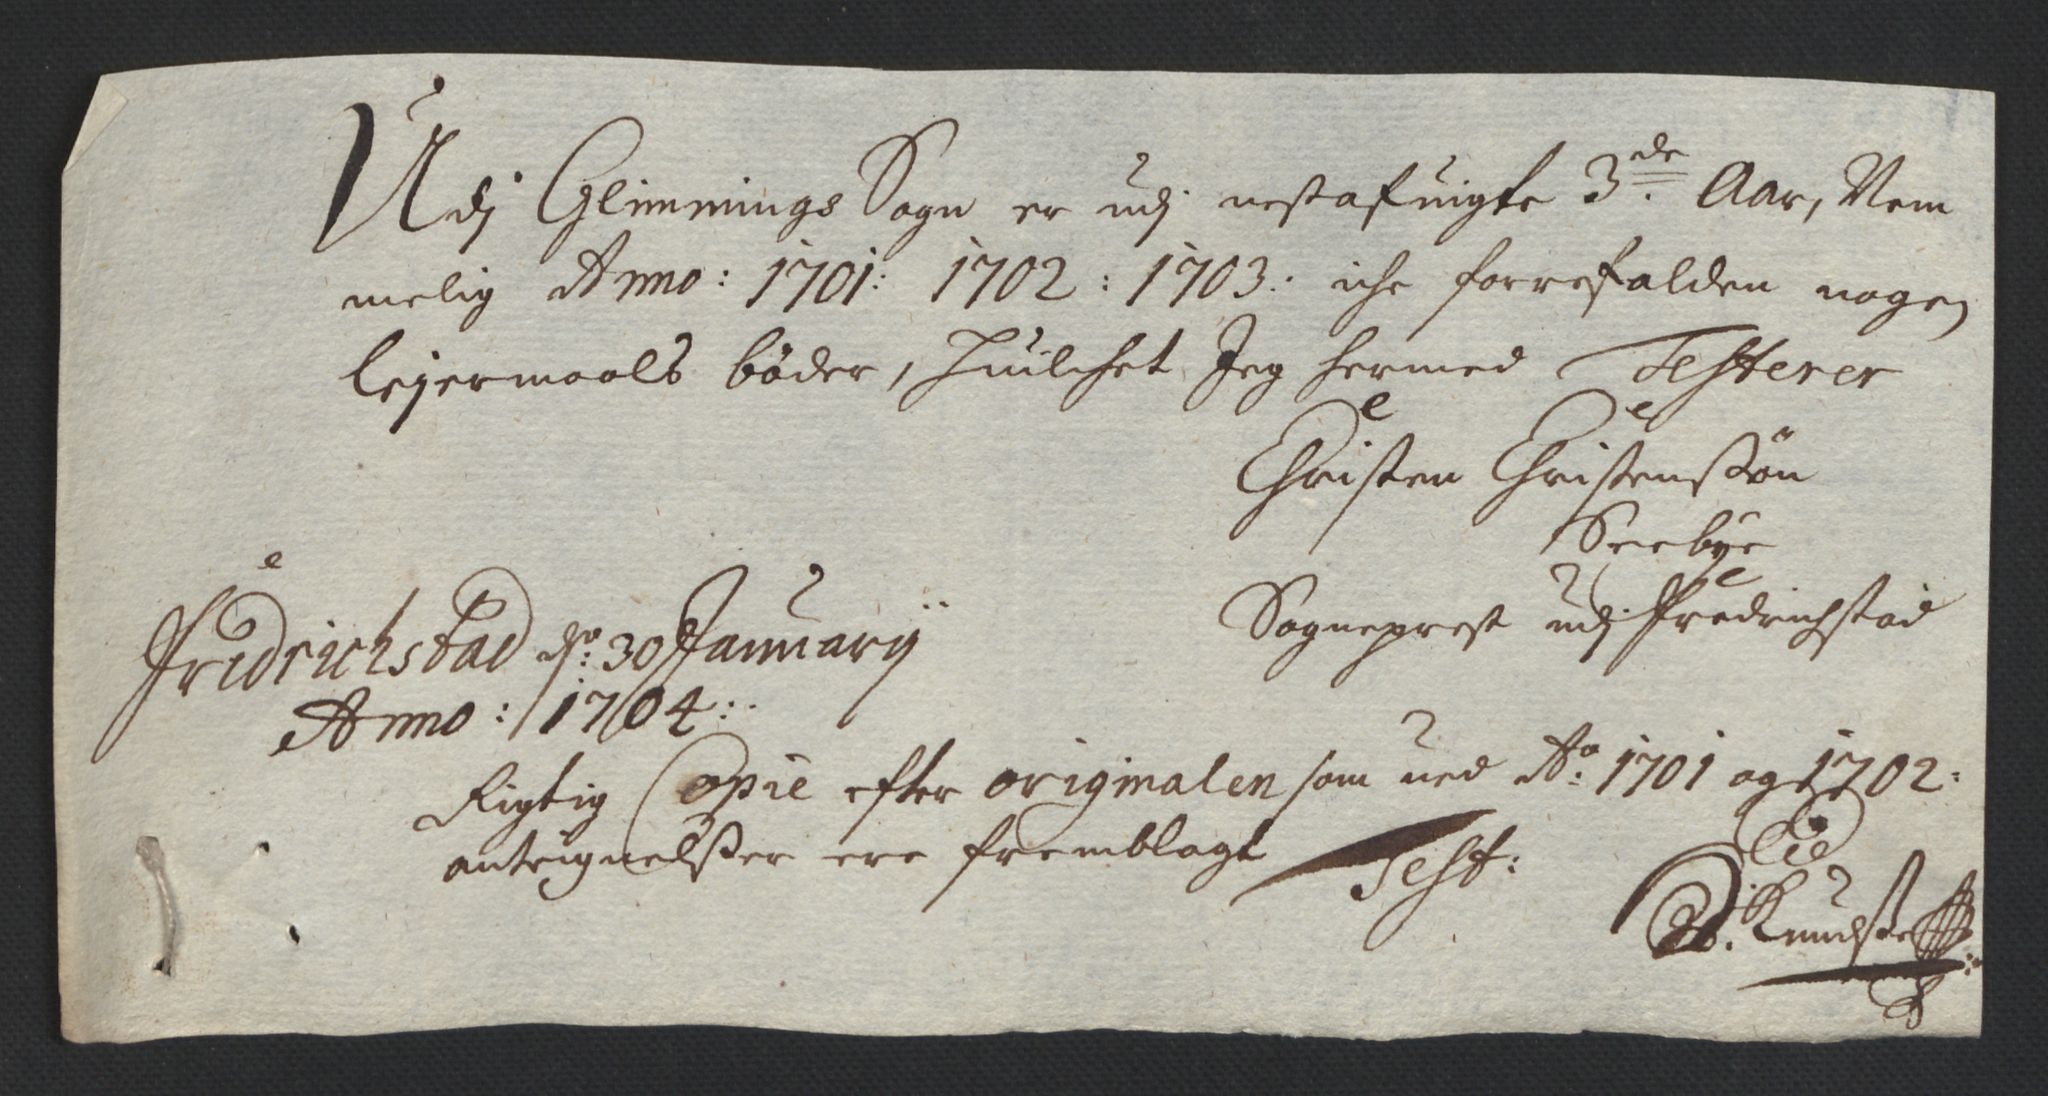 Udj Glimmings Sogn er udj nestafuigte 3de Aar, Nem
melig Anno: 1701: 1702: 1703: iche forrefalden nogen
leyermaals bøder, Huilchet Jeg hermed Testerer
Christen Christensøn
Seebye
Sogneprest udj Fredrichstad
Fridrichstad dn: 30 January
Anno: 1704:
Rigtig Copie efter originalen som ued Ao: 1701 og 1702:
anteignelser ere fremblagt Test:
Knudsen